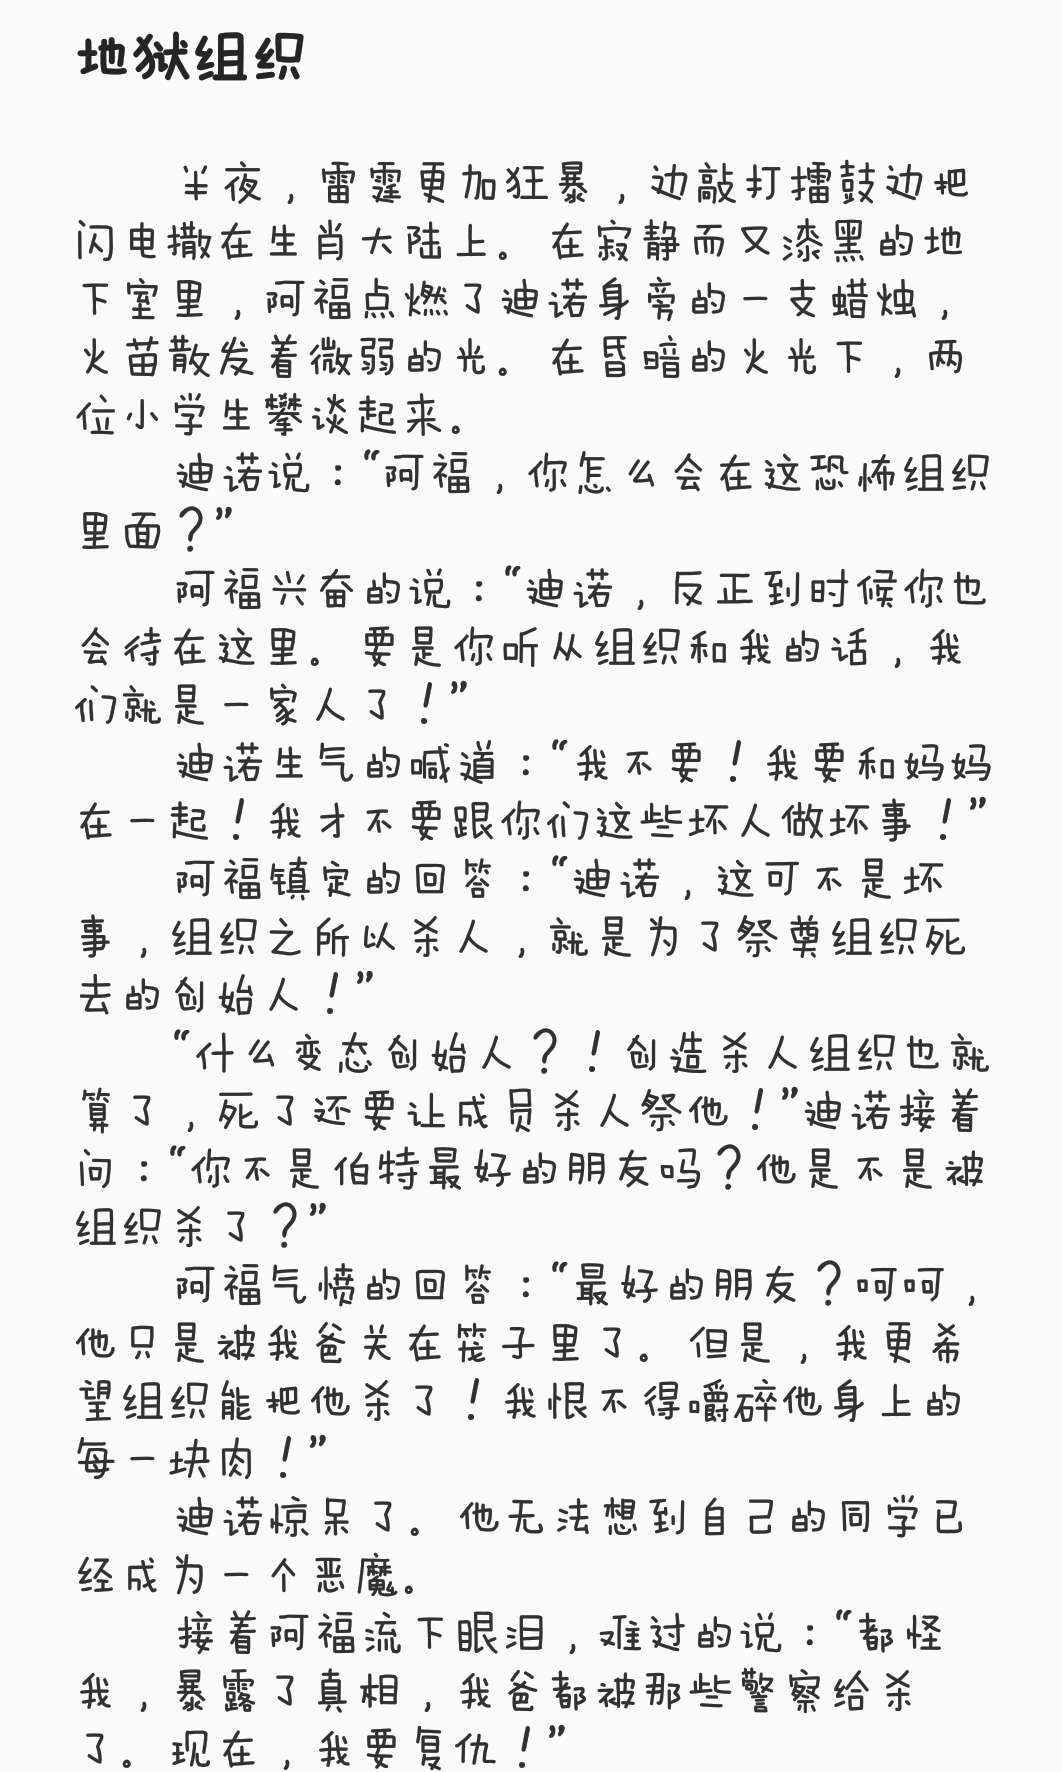 地狱组织
半夜，雷霆更加狂暴，边敲打擂鼓边把
闪电撒在生肖大陆上。在寂静而又漆黑的地
下室里，阿福点燃了迪诺身旁的一支蜡烛，
火苗散发着微弱的光。在昏暗的火光下，两
位小学生攀谈起来。
迪诺说：“阿福，你怎么会在这恐怖组织
里面？”
阿福兴奋的说：“迪诺，反正到时候你也
会待在这里。要是你听从组织和我的话，我
们就是一家人了！”
迪诺生气的喊道：“我不要！我要和妈妈
在一起！我才不要跟你们这些坏人做坏事！”
阿福镇定的回答：“迪诺，这可不是坏
事，组织之所以杀人，就是为了祭奠组织死
去的创始人！”
“什么变态创始人？！创造杀人组织也就
算了，死了还要让成员杀人祭他！”迪诺接着
问：“你不是伯特最好的朋友吗？他是不是被
组织杀了？”
阿福气愤的回答：“最好的朋友？呵呵，
他只是被我爸关在笼子里了。但是，我更希
望组织能把他杀了！我恨不得嚼碎他身上的
每一块肉！”
迪诺惊呆了。他无法想到自己的同学已
经成为一个恶魔。
接着阿福流下眼泪，难过的说：“都怪
我，暴露了真相，我爸都被那些警察给杀
了。现在，我要复仇！”